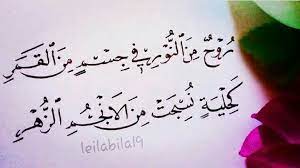 رُوحٌ مِنَ النُّورِ في جِسْمٍ مِنَ القَمَرِ
كَحِليَةٍ نُسِجَتْ مِنَ الأنْجُمِ الزُّهْرِ
leilabilal9